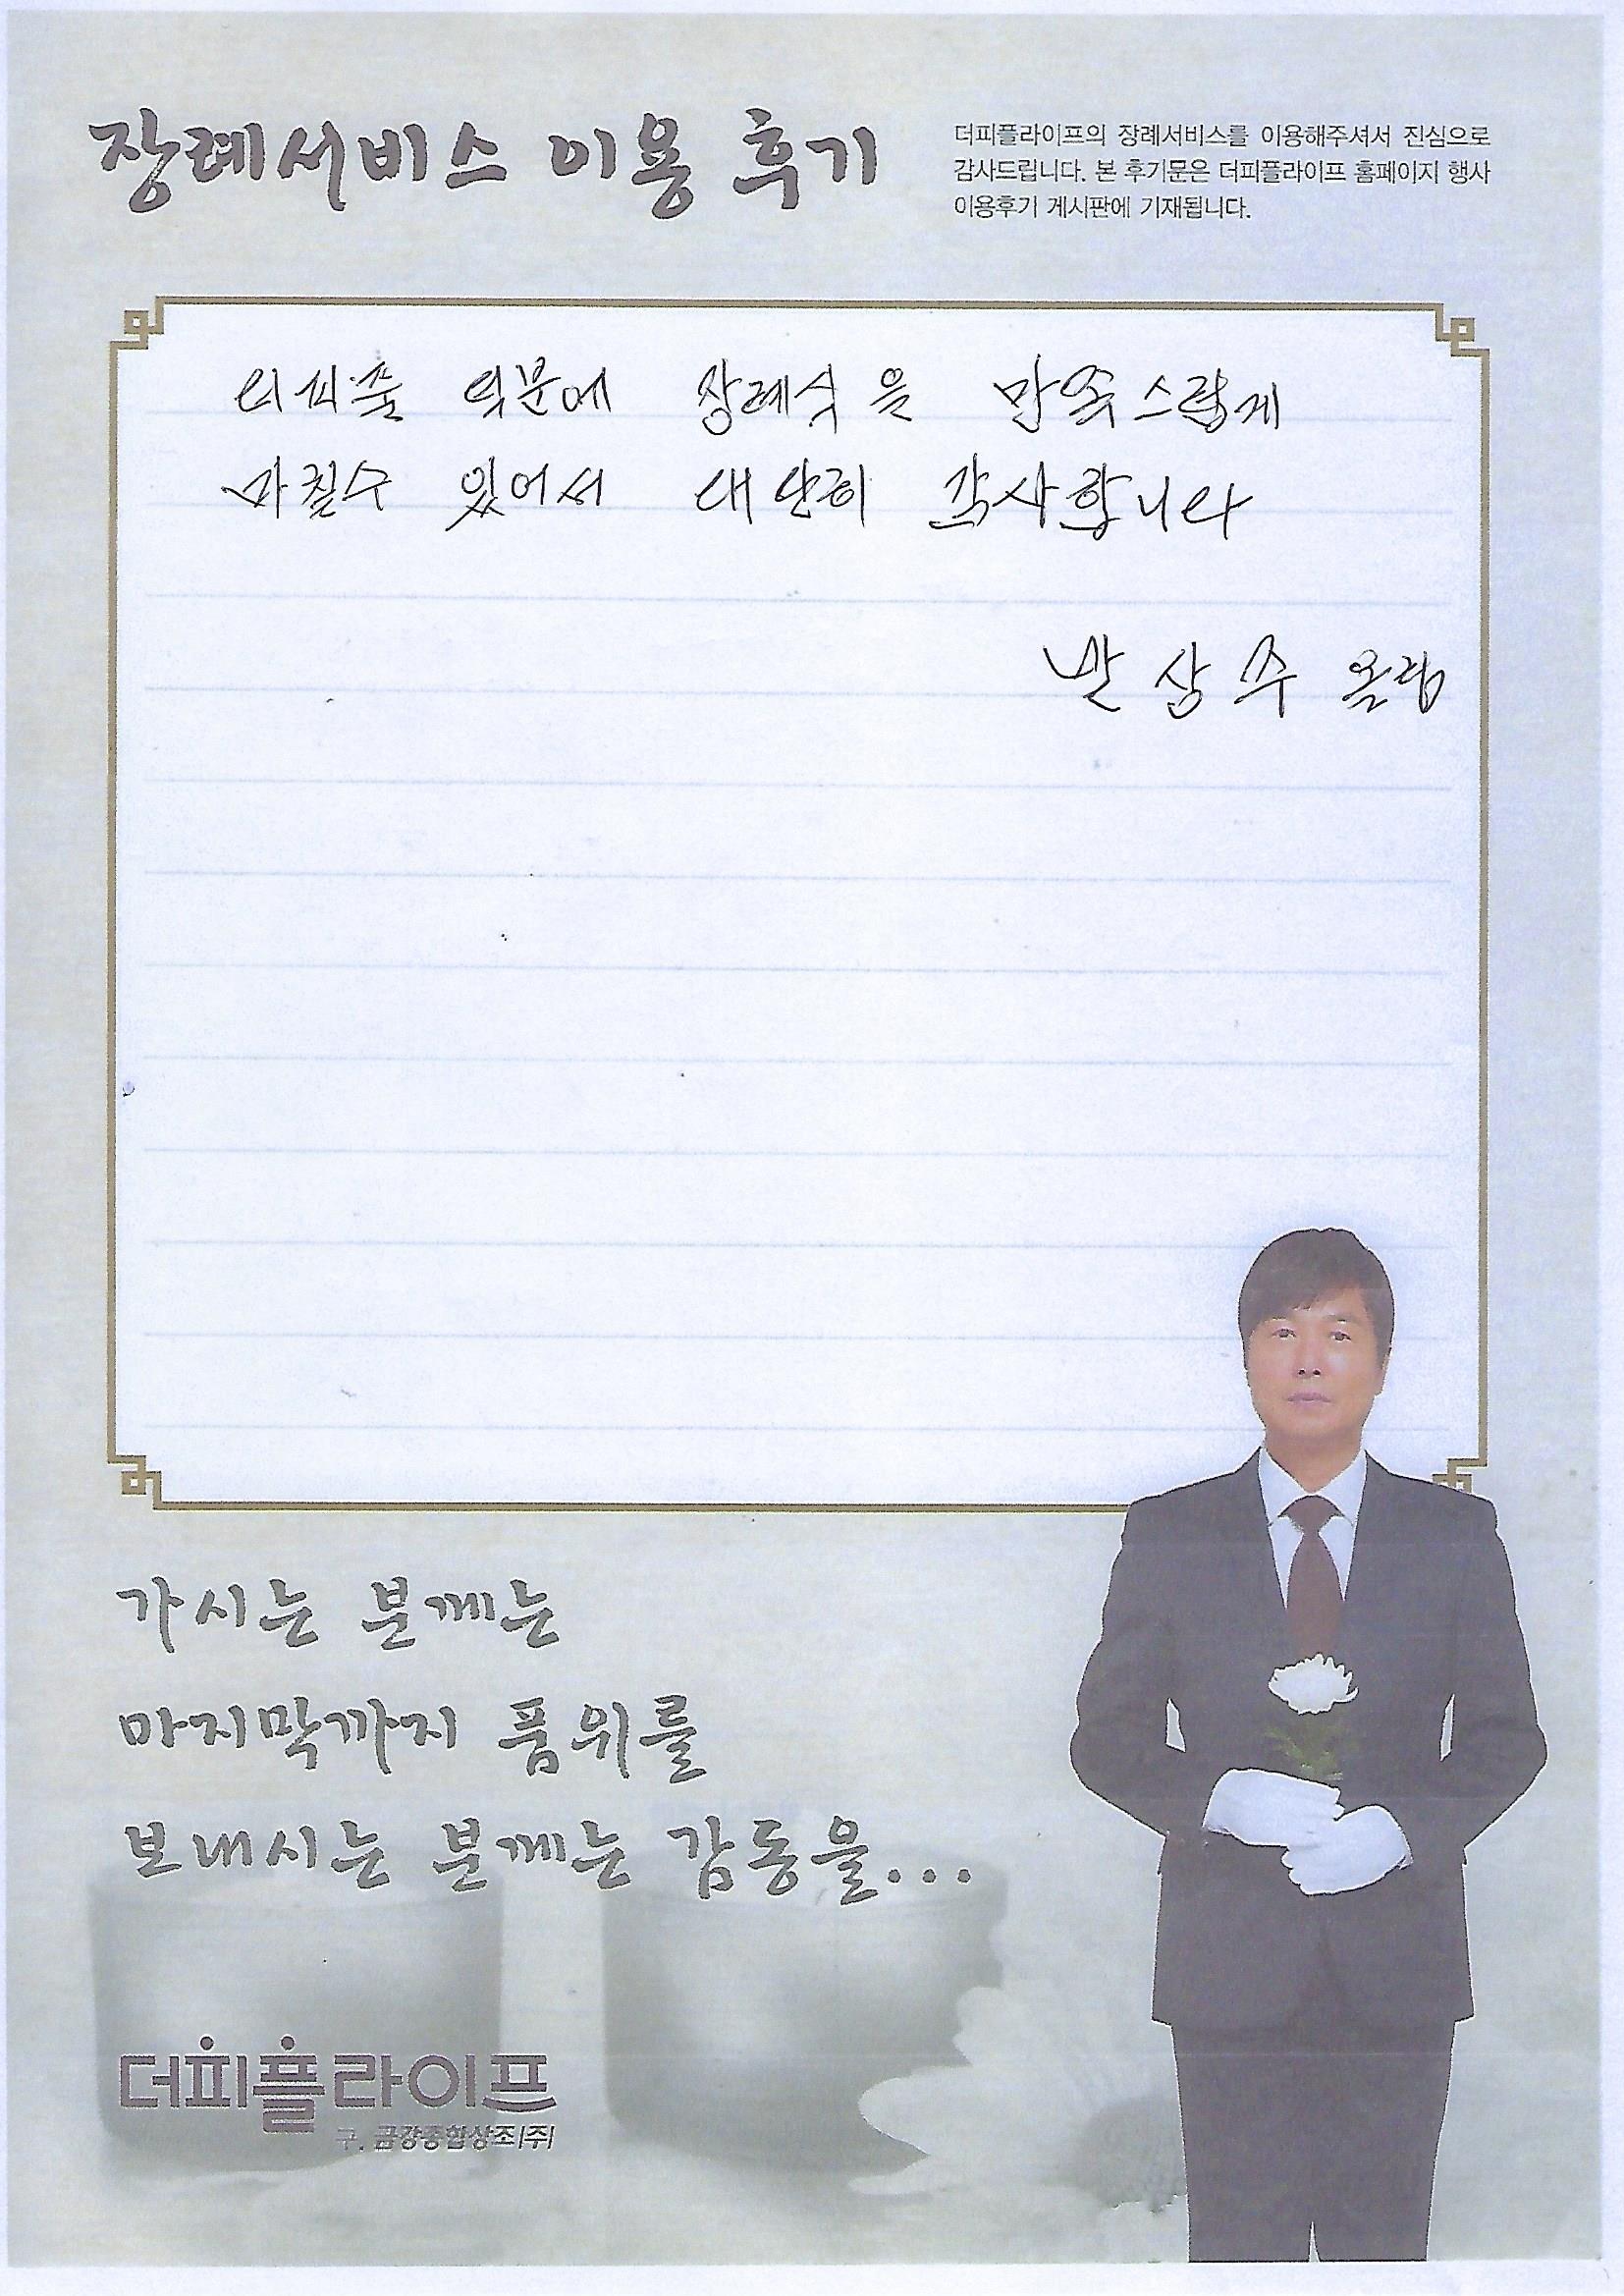 장례서비스 이용 후기
더피플라이프의 장례서비스를 이용해주셔서 진심으로
감사드립니다. 본 후기문은 더피플라이프 홈페이지 행사
이용후기 게시판에 기재됩니다.
더피플 덕분에 장례식을 만족스럽게
마칠수 있어서 대단히 감사합니다
상수 올림
가시는 분께는
마지막까지 품위를
보내시는 분께는 감동을...
더피플라이프
구. 금강종합상조(주)